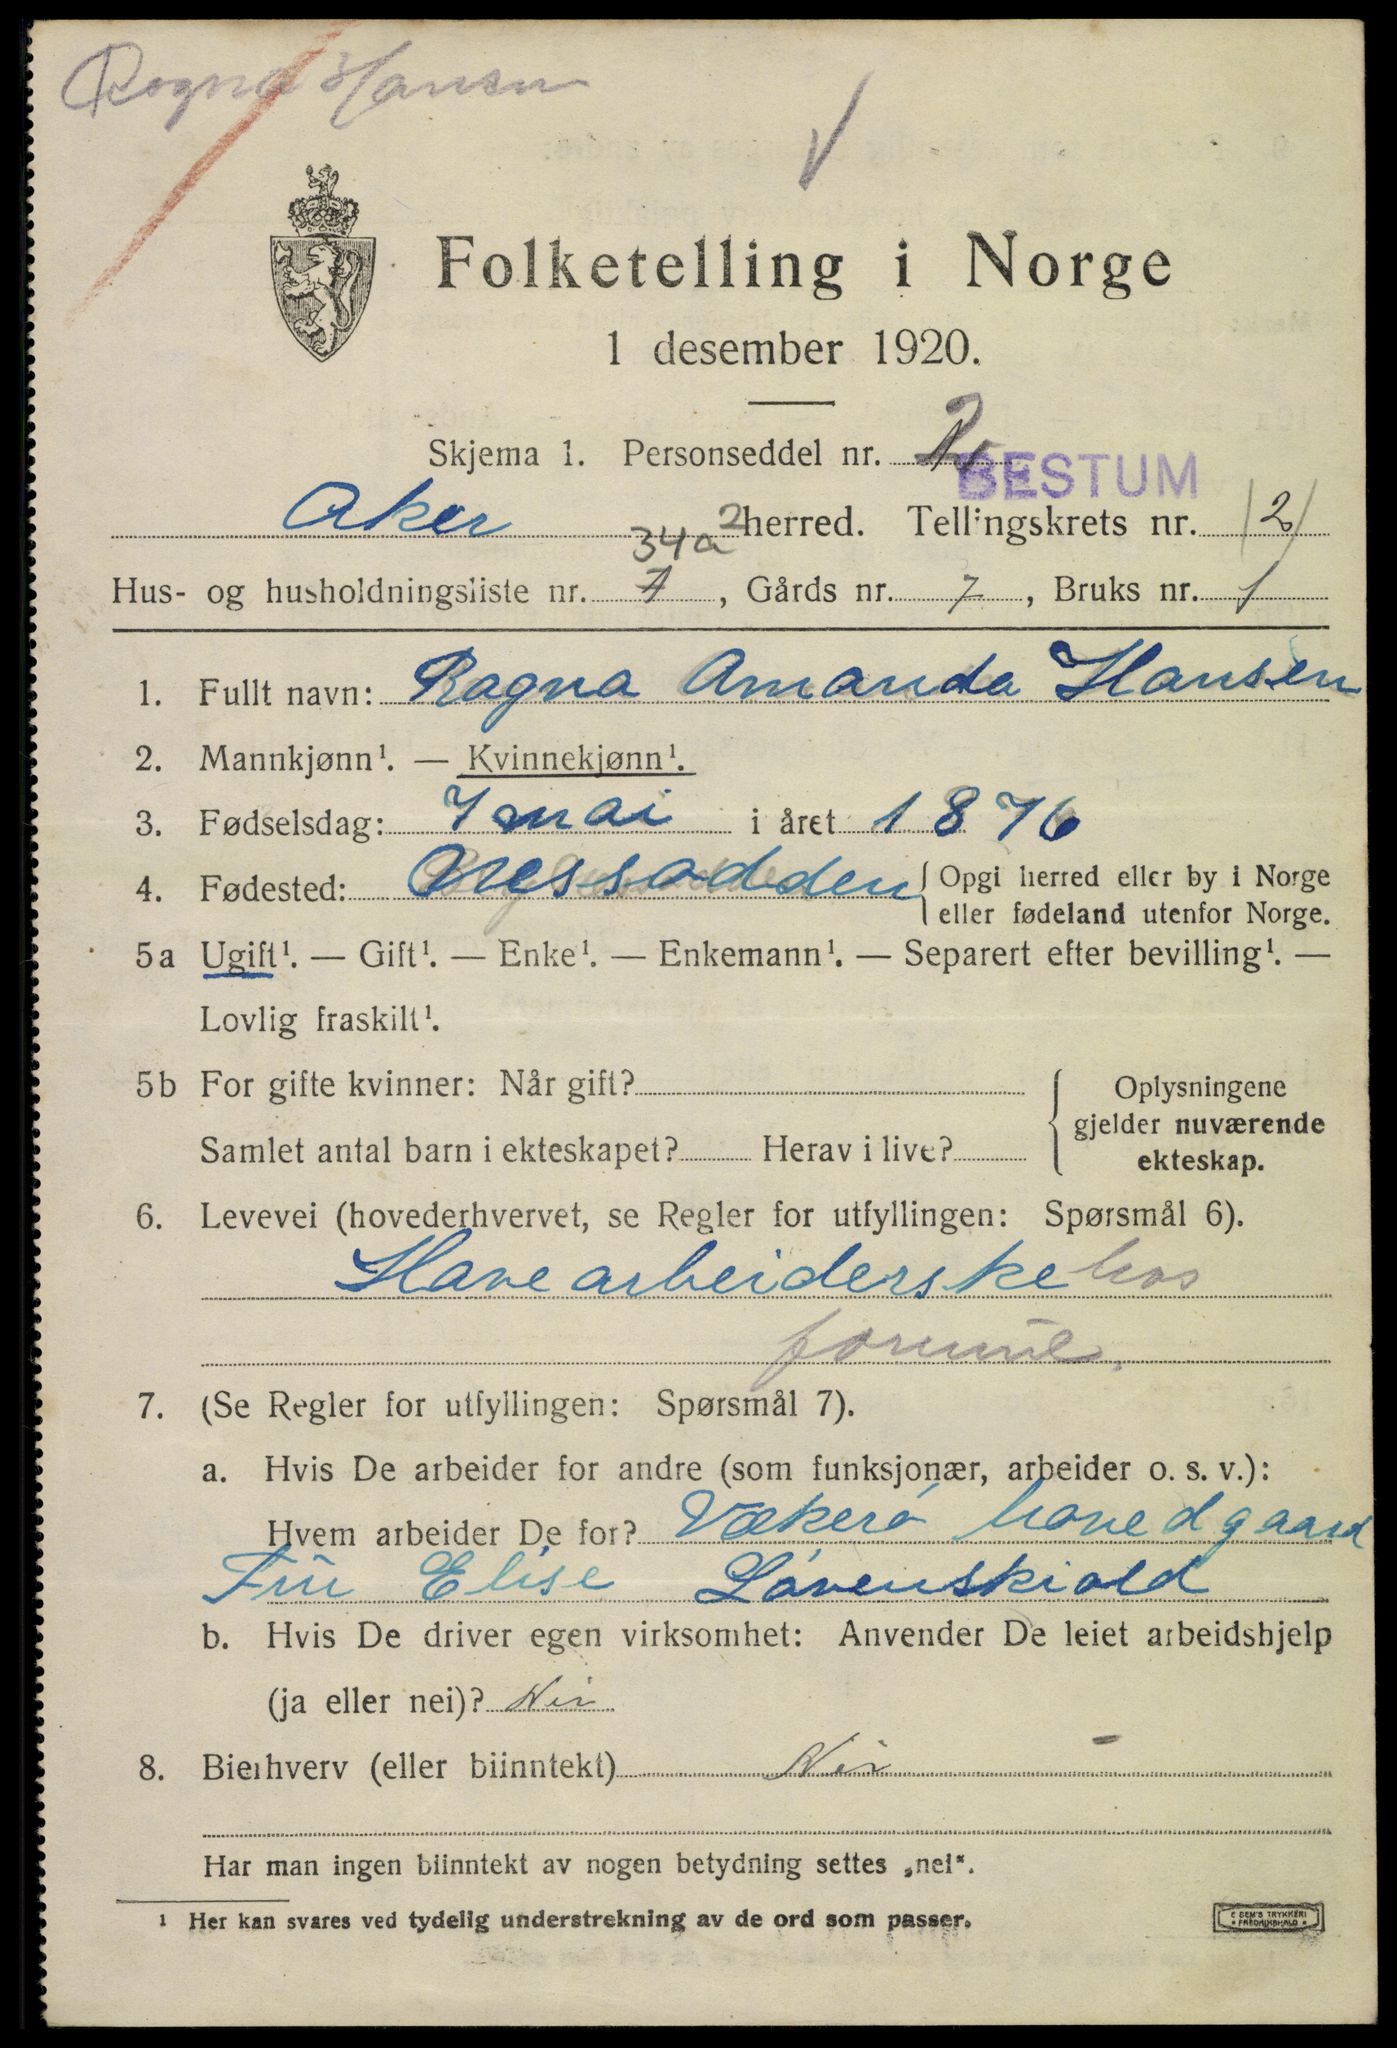 Ragna Hansen
Folketelling i Norge
1 desember 1920.
Skjema 1. Personseddel nr. 2
BESTUM
Aker herred. Tellingskrets nr. 2
34a 2
Hus- og husholdningsliste nr. 7, Gårds nr. 7, Bruks nr. 1
1. Fullt navn: Ragna Amanda Hansen
2. Mannkjønn¹. — Kvinnekjønn¹.
3. Fødselsdag: 7 mai i året 1876
4. Fødested: Nessodden { Opgi herred eller by i Norge
eller fødeland utenfor Norge.
5a Ugift¹. — Gift¹. — Enke¹. — Enkemann¹. — Separert efter bevilling¹. —
Lovlig fraskilt¹.
5b For gifte kvinner: Når gift? { Oplysningene
gjelder nuværende
Samlet antal barn i ekteskapet? Herav i live? ekteskap.
6. Levevei (hovederhvervet, se Regler for utfyllingen: Spørsmål 6).
Havearbeiderske hos
7. (Se Regler for utfyllingen: Spørsmål 7).
a. Hvis De arbeider for andre (som funksjonær, arbeider o. s. v.):
Hvem arbeider De for? Vækerö hovedgaard
Fru Elise Lövenskiold
b. Hvis De driver egen virksomhet: Anvender De leiet arbeidshjelp
(ja eller nei)? Nei
8. Bierhverv (eller biinntekt) Nei
Har man ingen biinntekt av nogen betydning settes „nei“.
¹ Her kan svares ved tydelig understrekning av de ord som passer.
E SEM'S TRYKKERI
FREDRIKSHALD